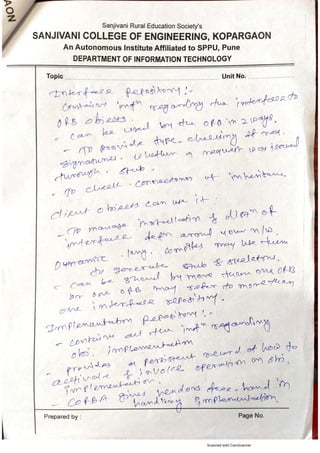 AON
Sanjivani Rural Education Society's
SANJIVANI COLLEGE OF ENGINEERING, KOPARGAON
An Autonomous Institute Affiliated to SPPU, Pune
DEPARTMENT OF INFORMATION TECHNOLOGY
Topic Unit No.
Interface Repository :-
Contains infⁿ regarding the interfaces to
ORB objects.
- can be used by the ORB in 2 ways.
- To provide type-checking of req.
signatures, whether a request was issued
through stub.
- To check correctness of inheritance
client objects can use it.
- To manage installation & distⁿ of
interface defn around your n/w.
. lang. compiles may use them
to generate stub & skeletons.
- can be shared by more than one ORB
or one ORB may refer to more than
one interface repository.
Implementation Repository :-
- contains all the infⁿ regarding
obj. implementation
- provides a persistent record of how to
activate & invoke operation on obj.
implementation.
- CORBA gives vendors free hand in
handling implementation.
Prepared by : Page No.
Scanned with CamScanner